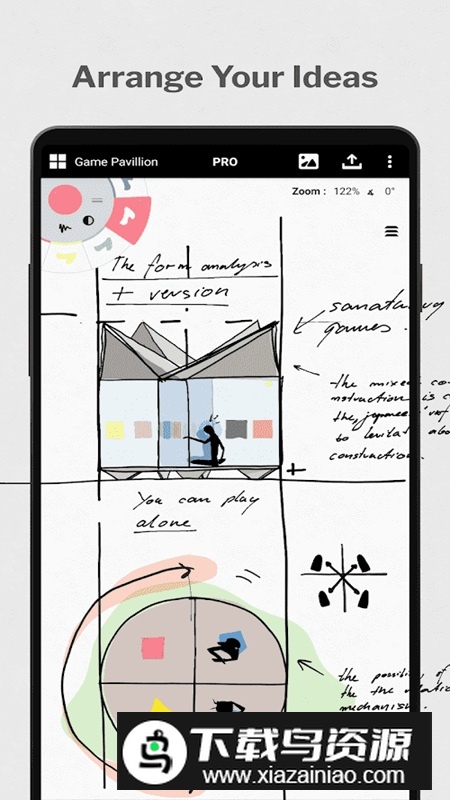 Arrange Your Ideas
Game Pavillion
PRO
Zoom : 122% 0°
The form analysis
+ version
games.
the mixed
is c
the
to levitat
construction.
You can play
alone
+
the of
the the
mechanism.
下载鸟资源
www.xiazainiao.com